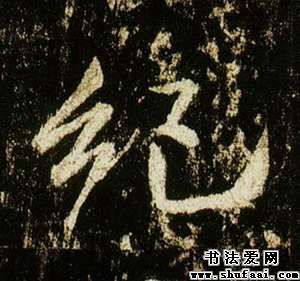 绝
书法爱网
www.shufaai.com